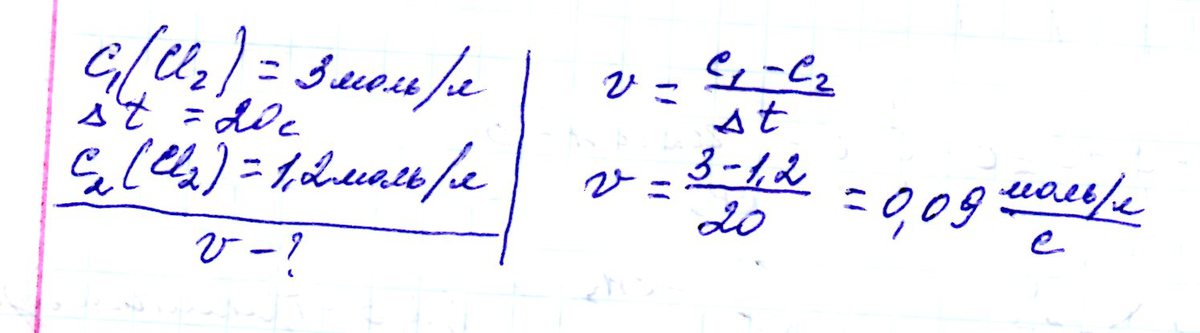 C₁(Cl₂) = 3 моль/л
Δt = 20с
C₂(Cl₂) = 1,2 моль/л
v - ?
v = (c₁ - c₂)/Δt
v = (3 - 1,2)/20 = 0,09 (моль/л)/с